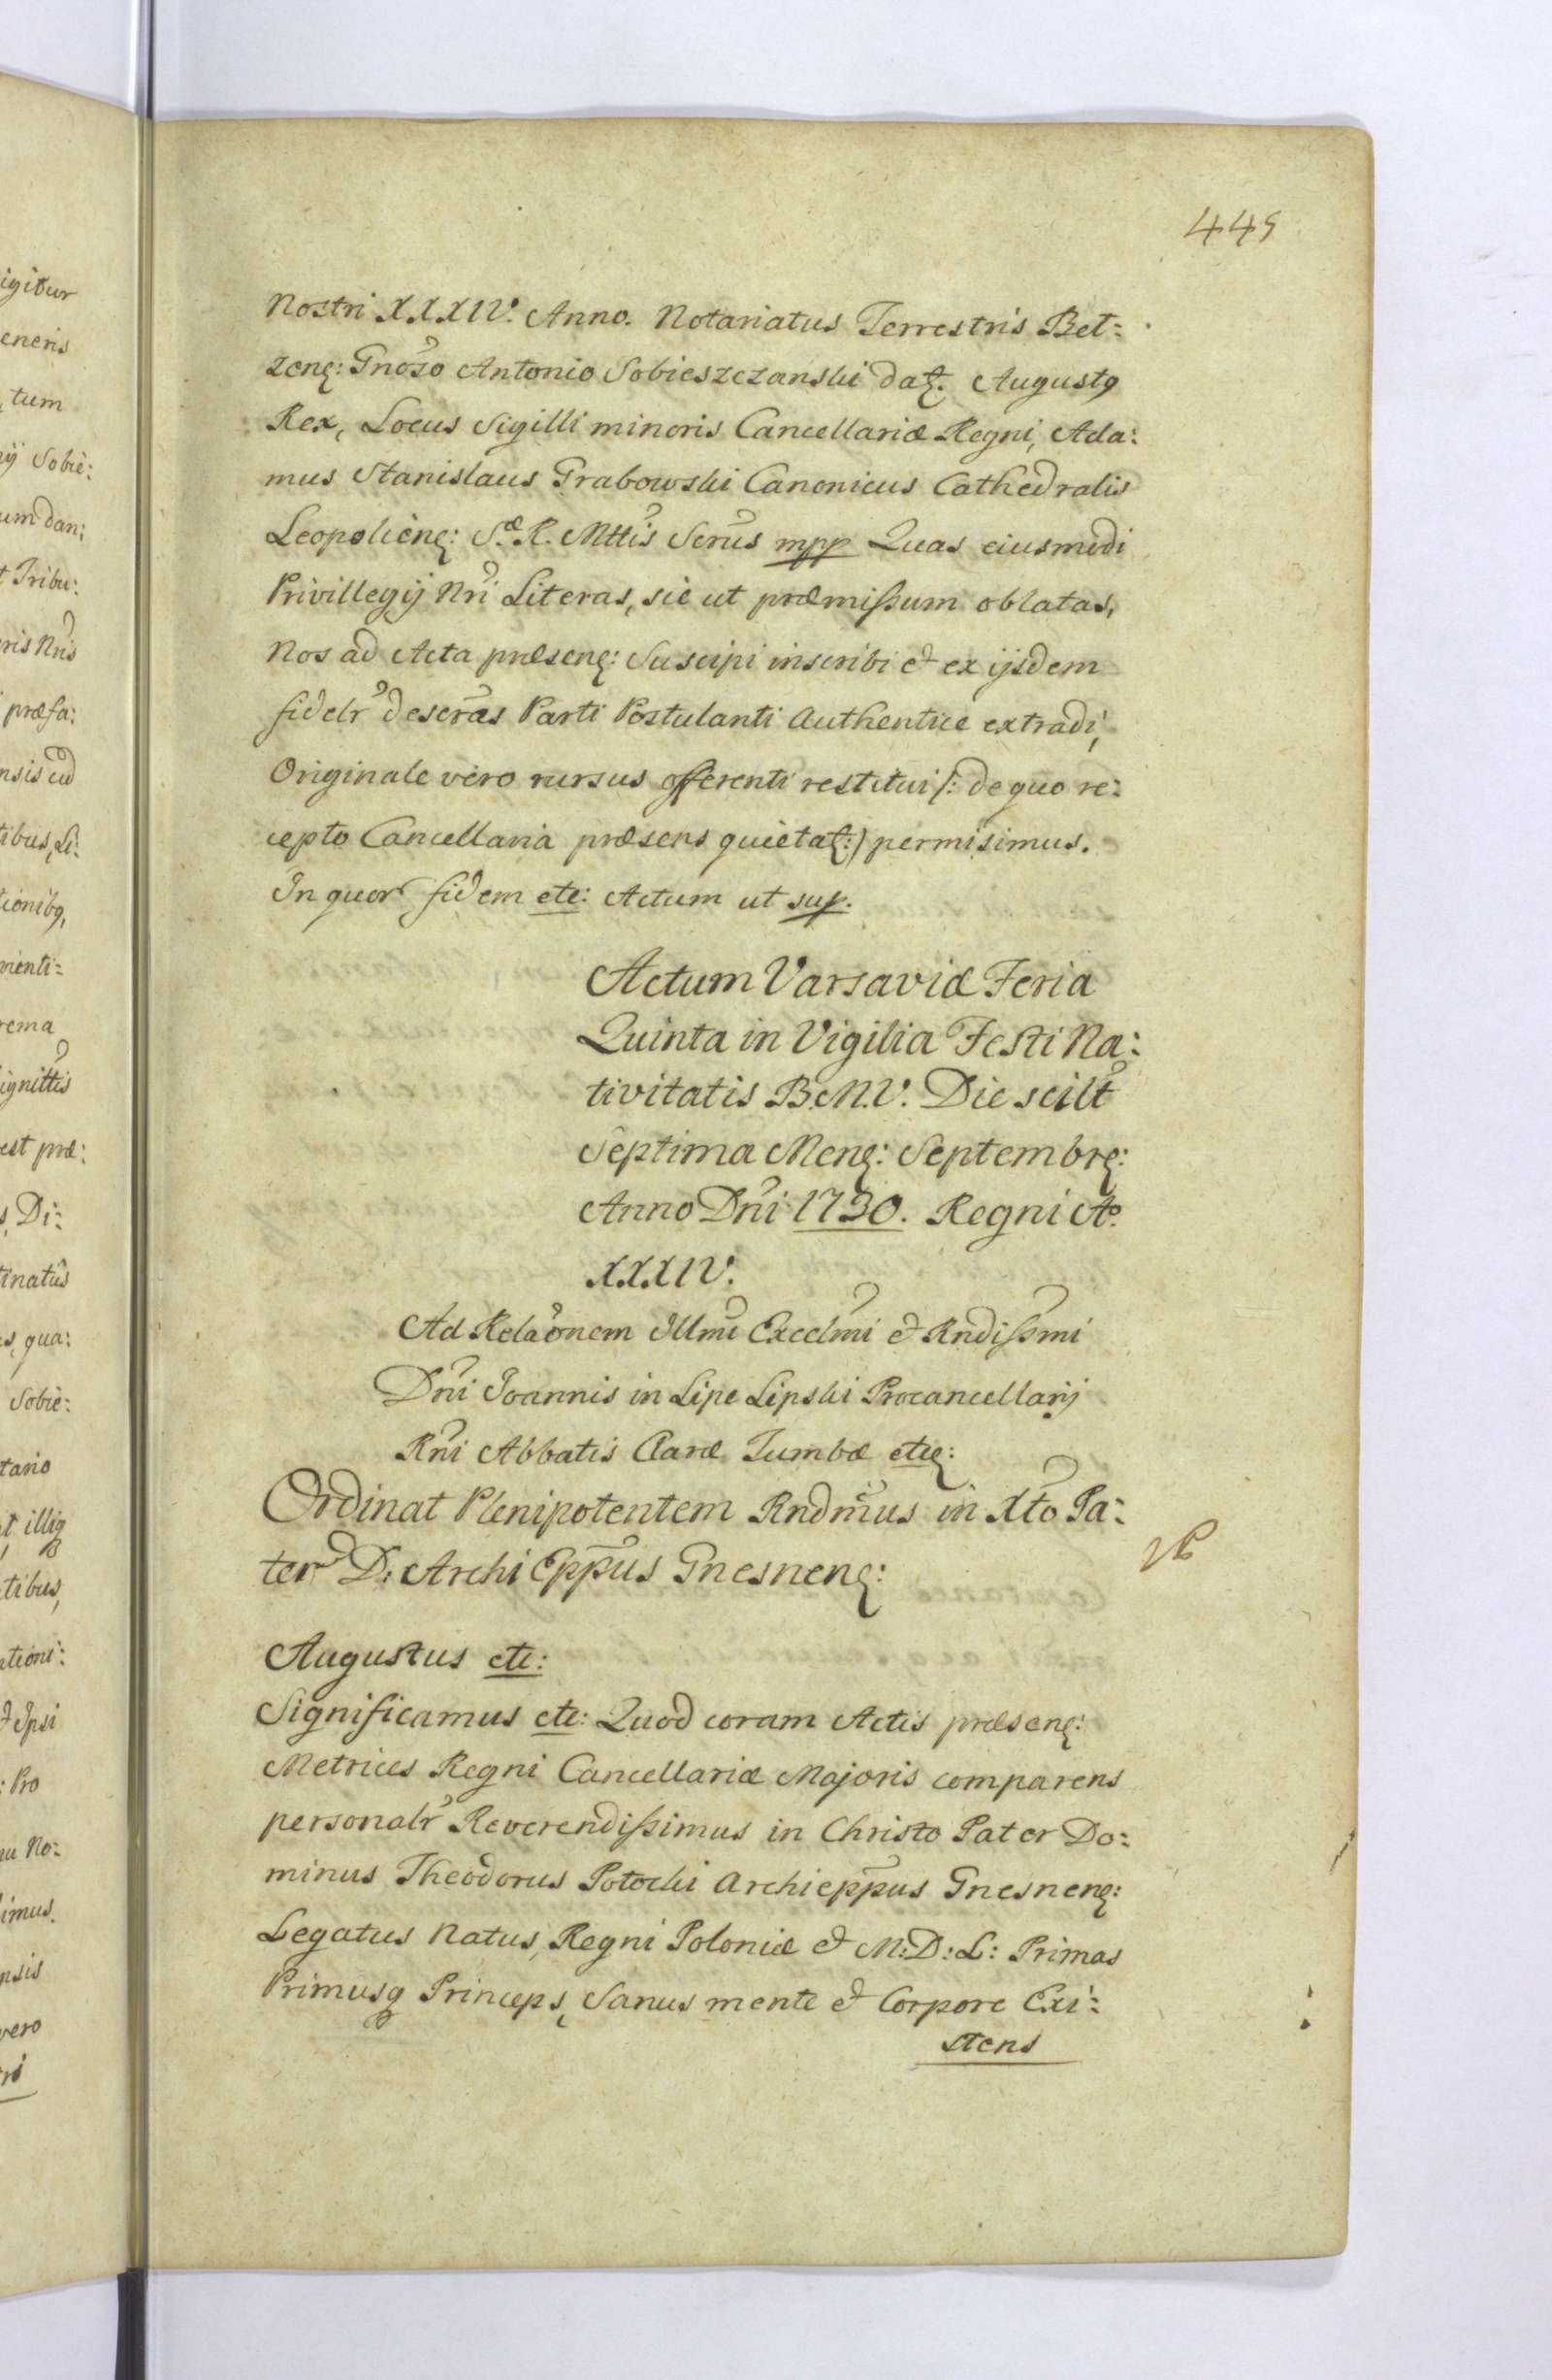 445
Nostri XXXIV. Anno. Notariatus Terrestris Bet:
zenę: Gnoso Antonio Sobieszczanski datę. Augustꝯ
Rex, Locus Sigilli minoris Cancellariæ Regni, Ada:
mus Stanislaus Grabowski Canonicus Cathedralis
Leopoliènę: S.æ R. Mttis Scrus mpp Quas eiusmodi
Privillegij Nri Literas, sic ut præmissum oblatas,
Nos ad Acta præsenę: Suscipi inscribi et ex ijsdem
fidelr descras Parti Postulanti Authentice extradi,
Originale vero rursus offerenti restitui /: de quo re:
cepto Cancellaria præsens quietatę:) permisimus.
In quor fidem etc: Actum ut sup.
Actum Varsaviæ Feria
Quinta in Vigilia Festi Na:
tivitatis B.M.V. Die scilt
Septima Menę: Septembrę:
Anno Dni 1730. Regni Aº
XXXIV.
Ad Relaonem Illmi Excelmi et Rndissmi
Dni Joannis in Lipe Lipski Procancellarij
Rni Abbatis Claræ Tumbæ etcę:
Ordinat Plenipotentem Rndmus in Xto Pa:
ter D: Archi Eppus Gnesnenę:
Augustus etc:
Significamus etc: Quod coram Actis præsenę:
Metrices Regni Cancellariæ Majoris comparens
personalr Reverendissimus in Christo Pater Do:
minus Theodorus Potocki Archieppus Gnesnenę:
Legatus Natus, Regni Poloniæ et M:D:L: Primas
Primusq Princeps, Sanus mente et Corpore Exi:
stens
igitur
eneris
tum
ij Sobie:
um dan:
t Tribu:
ris Nris
præfa:
nsis
tibus, Li:
tionibꝯ,
rienti:
rema
ignittis
est præ:
s, Di:
tinatus
s, qua:
Sobie:
tario
t illiꝯ
tibus,
ationi:
et Ipsi
: Pro
au No:
imus.
nsis
vero
ri